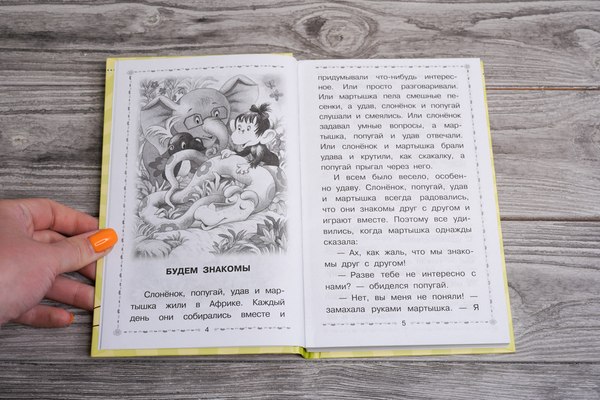 БУДЕМ ЗНАКОМЫ
Слонёнок, попугай, удав и мар-
тышка жили в Африке. Каждый
день они собирались вместе и
4
придумывали что-нибудь интерес-
ное. Или просто разговаривали.
Или мартышка пела смешные пе-
сенки, а удав, слонёнок и попугай
слушали и смеялись. Или слонёнок
задавал умные вопросы, а мар-
тышка, попугай и удав отвечали.
Или слонёнок и мартышка брали
удава и крутили, как скакалку, а
попугай прыгал через него.
И всем было весело, особен-
но удаву. Слонёнок, попугай, удав
и мартышка всегда радовались,
что они знакомы друг с другом и
играют вместе. Поэтому все уди-
вились, когда мартышка однажды
сказала:
— Ах, как жаль, что мы знако-
мы друг с другом!
— Разве тебе не интересно с
нами? — обиделся попугай.
— Нет, вы меня не поняли! —
замахала руками мартышка. — Я
5